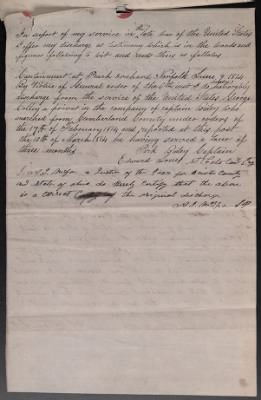 In support of my service in late war of the United States
I offer my discharge as follows which is in the words and
figures following to wit and reads thus as follows
Cantonment at Peach orchard Norfolk June 9 1814
By Virtue of General order of the 6th inst I do honorably
discharge from the service of the United States George
a private in the company of captain
marched from Cumberland County under orders of
the 17th of February 1814 and reported at this post
the 10th of March 1814 he having served a tour of
three months
Captain
Edward
I A. J. a Justice of the Peace for County
and State of ohio do Hereby Certify that the above
is a correct Copy of the original discharge
A. J.